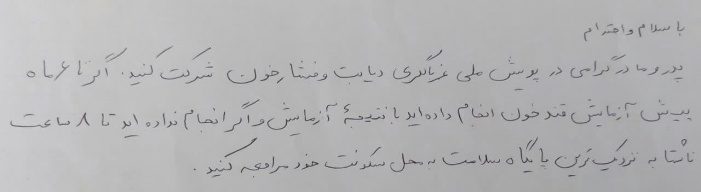 با سلام و احترام
پدر و مادر گرامی در پویش ملی غربالگری دیابت و فشار خون شرکت کنید. اگر تا ۶ ماه
پیش آزمایش قند خون انجام داده اید با نتیجهٔ آزمایش و اگر انجام نداده اید تا ۸ ساعت
ناشتا به نزدیک ترین پایگاه سلامت به محل سکونت خود مراجعه کنید.